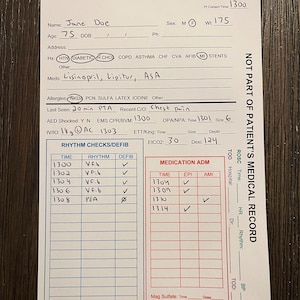 Pt Contact Time 1300
Name: Jane Doe Sex: M F Wt: 175
Age: 75 DOB / / Ph:
Address
Hx: HTN DIABETIC ↑CHOL COPD ASTHMA CHF CVA AFIB MI STENTS
Other
Meds: Lisinopril, Lipitor, ASA
Allergies: NKDA PCN SULFA LATEX IODINE Other
Last Seen: 20 min PTA Recent C/O Chest pain
AED Shocked Y N EMS CPR/BVM 1300 OPA/NPA: Time 1301 Size 6
IV/IO 18g @ AC 1303 ETT/King: Time Size Depth
EtCO2 30 Dex 124
RHYTHM CHECKS/DEFIB
TIME RHYTHM DEFIB
1300 V.F.b ✓
1302 V.F.b ✓
1304 V.F.b ✓
1306 V.F.b ✓
1308 PEA
MEDICATION ADM
TIME EPI AMI
1304 ✓
1309 ✓
1310 ✓
1314 ✓
Mag Sulfate: Time Dose
Other
NOT PART OF PATIENT'S MEDICAL RECORD
ROSC Time HR Rhythm BP
TOD Hospital Dr. TOD